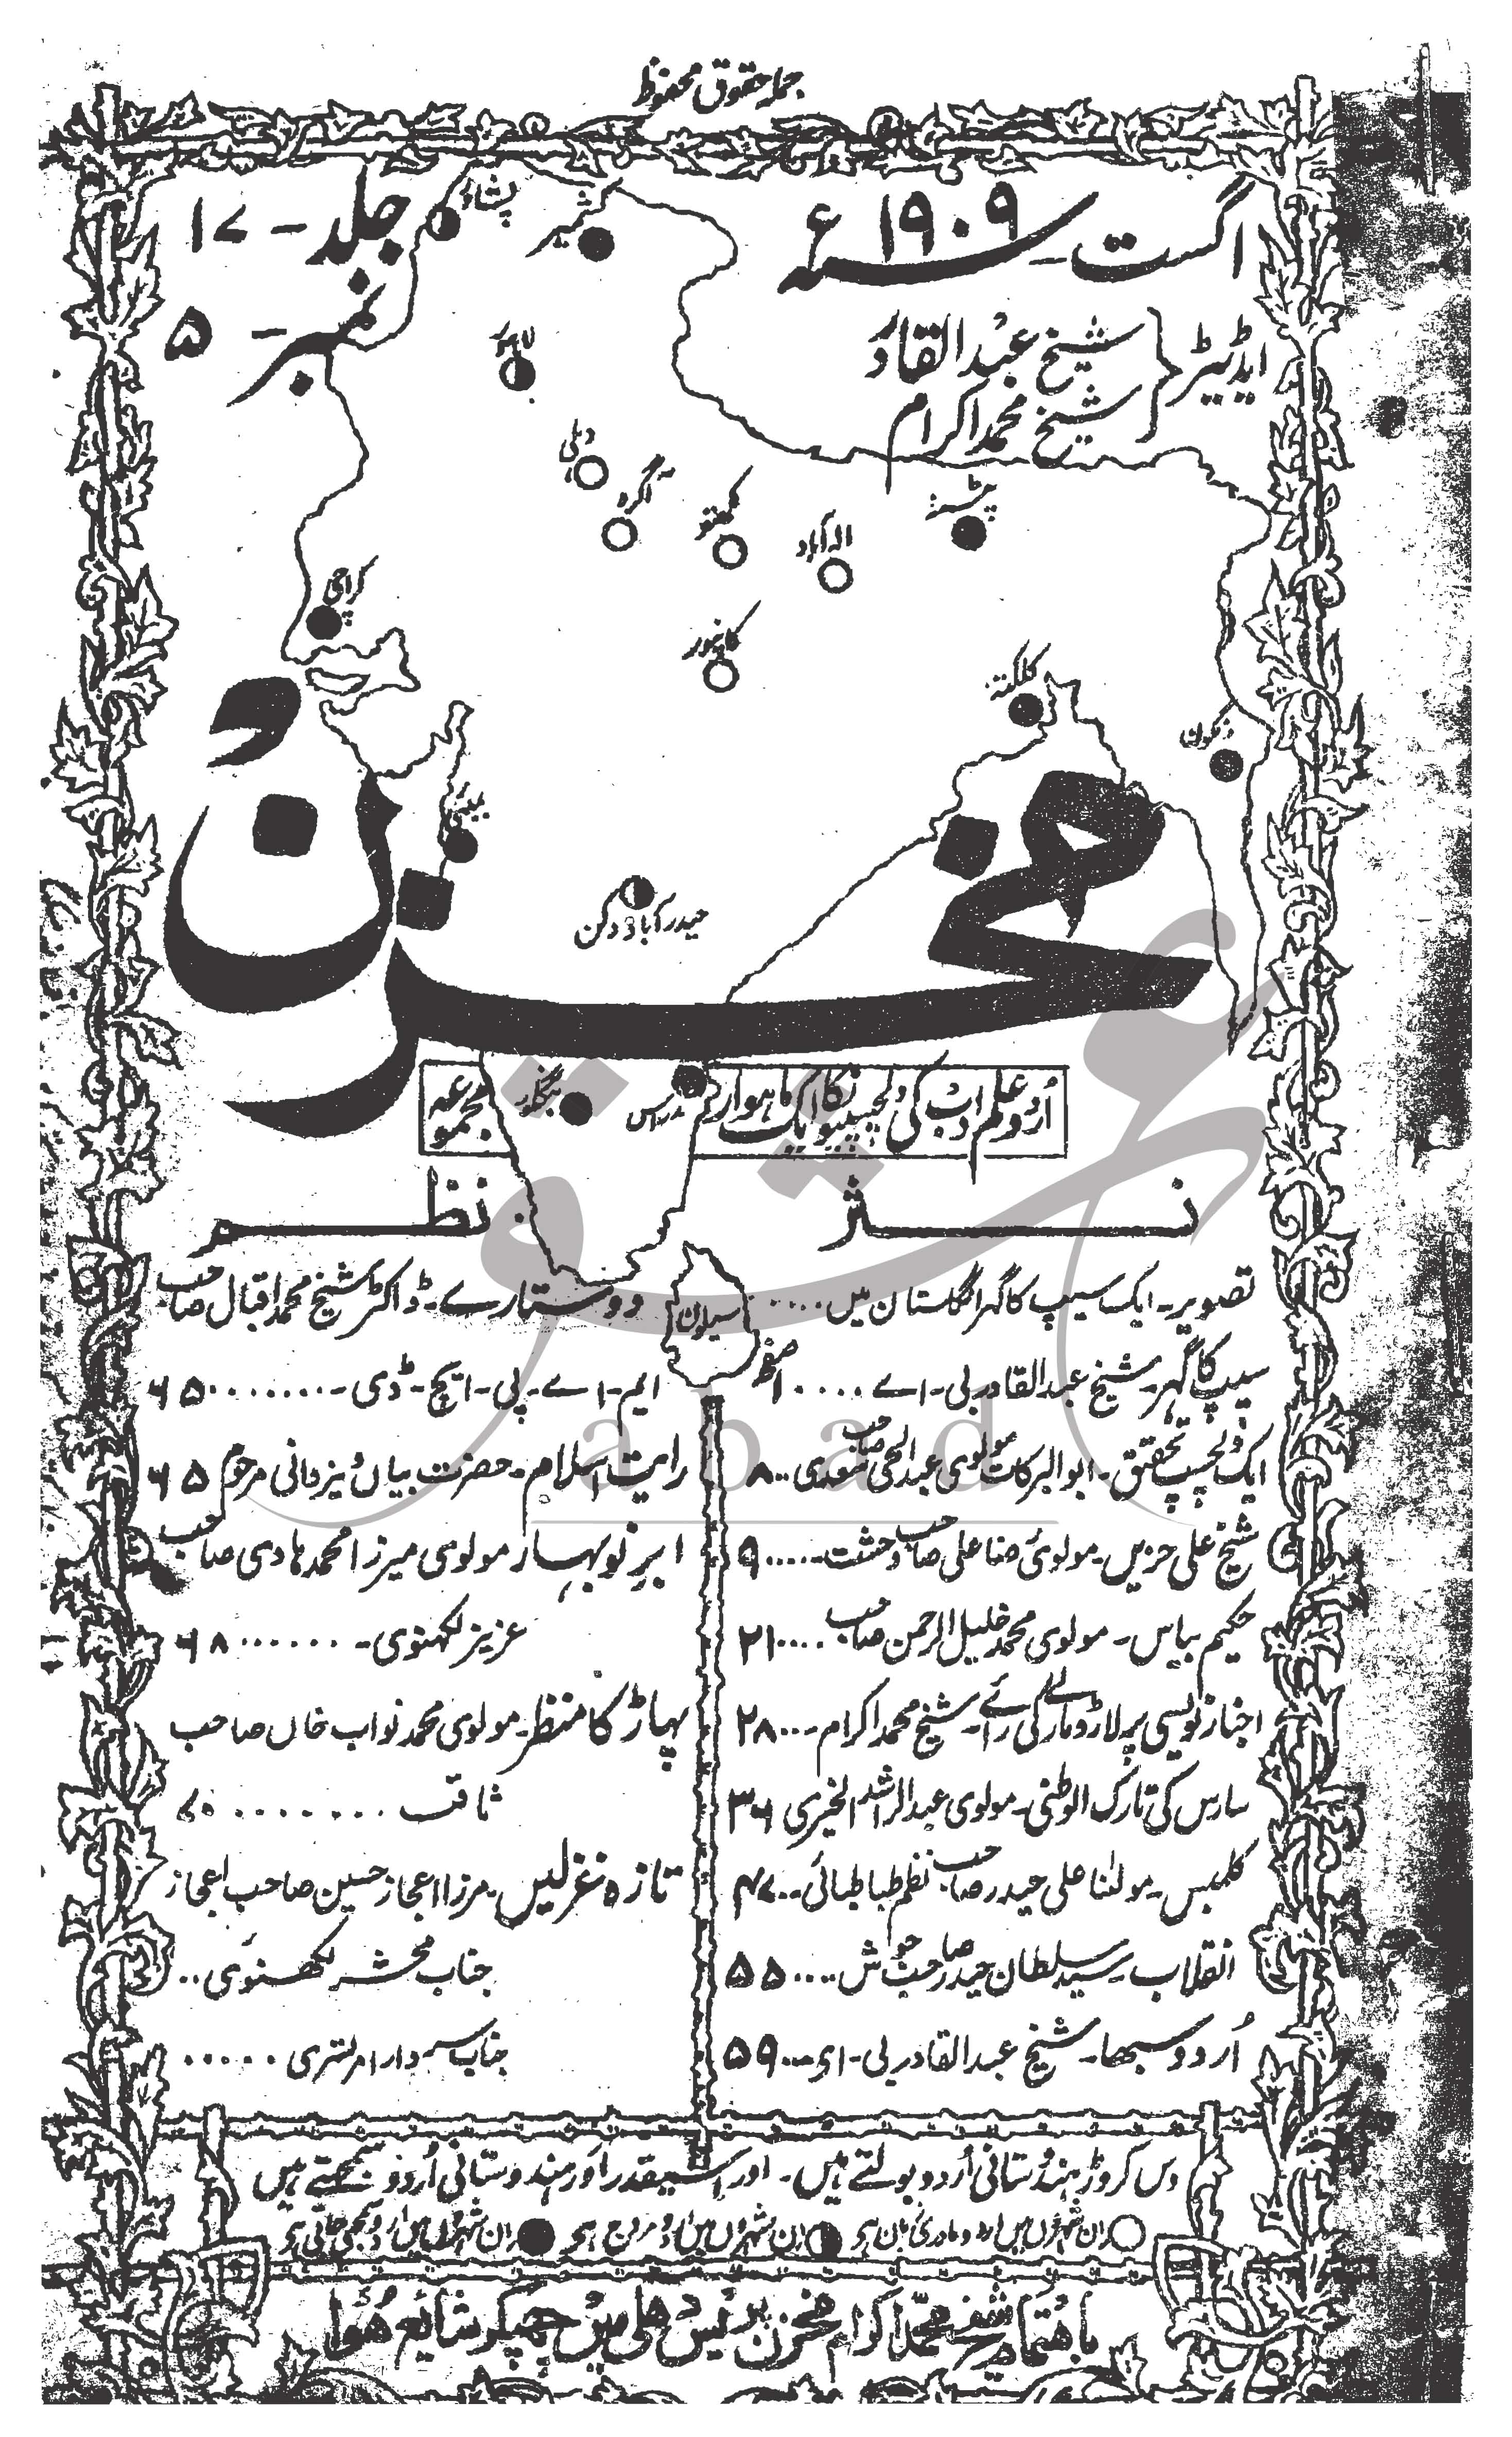 جملہ حقوق محفوظ
اگست ۔ سنہ ۱۹۰۹ء
جلد ۔ ۱۷
نمبر ۔ ۵
ایڈیٹر { شیخ عبدالقادر
شیخ محمد اکرام
پشاور
کشمیر
لاہور
دہلی
آگرہ
لکھنؤ
الہ آباد
پٹنہ
کراچی
کانپور
کلکتہ
رنگون
بمبئی
حیدر آباد دکن
مخزن
اُردو علم ادب کی دلچسپیوں کا ایک ماہوار
مجموعہ
مدراس
بنگلور
سیلون
نثر
تصویر۔ ایک سیپ کا گھر انگلستان میں ....
صفحہ
سیپ کا گہر۔ شیخ عبدالقادر بی۔ اے .... ۱
ایک دلچسپ تحقیق۔ ابوالبرکات مولوی عبدالحی صاحب .. ۸
شیخ علی حزیں۔ مولوی رضا علی صاحب وحشت ..... ۹
حکیم بیاس۔ مولوی محمد خلیل الرحمن صاحب .... ۲۱
اخبار نویسی پر لارڈ مارلے کی رائے۔ شیخ محمد اکرام ۔.. ۲۸
سارس کی تارک الوطنی۔ مولوی عبدالراشد الخیری ۳۶
کلمبس۔ مولٰنا علی حیدر صاحب نظم طباطبائی .. ۴۷
انقلاب۔ سید سلطان حیدر صاحب جوش .... ۵۵
اُردو سبھا۔ شیخ عبدالقادر بی۔ اے ... ۵۹
نظم
دو ستارے۔ ڈاکٹر شیخ محمد اقبال صاحب
ایم۔ اے۔ پی۔ ایچ۔ ڈی۔ ........ ۶۵
رایت اسلام۔ حضرت بیاں یزدانی مرحوم ۶۵
ابرِ نو بہار مولوی میرزا محمد ہادی صاحب
عزیز لکہنوی۔ ...... ۶۸
پہاڑ کا منظر۔ مولوی محمد نواب خاں صاحب
ثاقب ........ ۷۰
تازہ غزلیں۔ مرزا اعجاز حسین صاحب اعجاز
جناب محشر لکھنوئی ..
جناب سردار امرتسری .....
دس کروڑ ہندُستانی اُردو بولتے ہیں۔ اور اسیقدر اَور ہندوستانی اُردو سمجھتے ہیں
○ ان شہروں میں اردو مادری زبان ہے ◑ ان شہروں میں اردو مروج ہے ● ان شہروں میں اردو سمجھی جاتی ہے
باہتمام شیخ محمد اکرام مخزن پریس دہلی میں چھپکر شائع ہُوا
عشق
abad